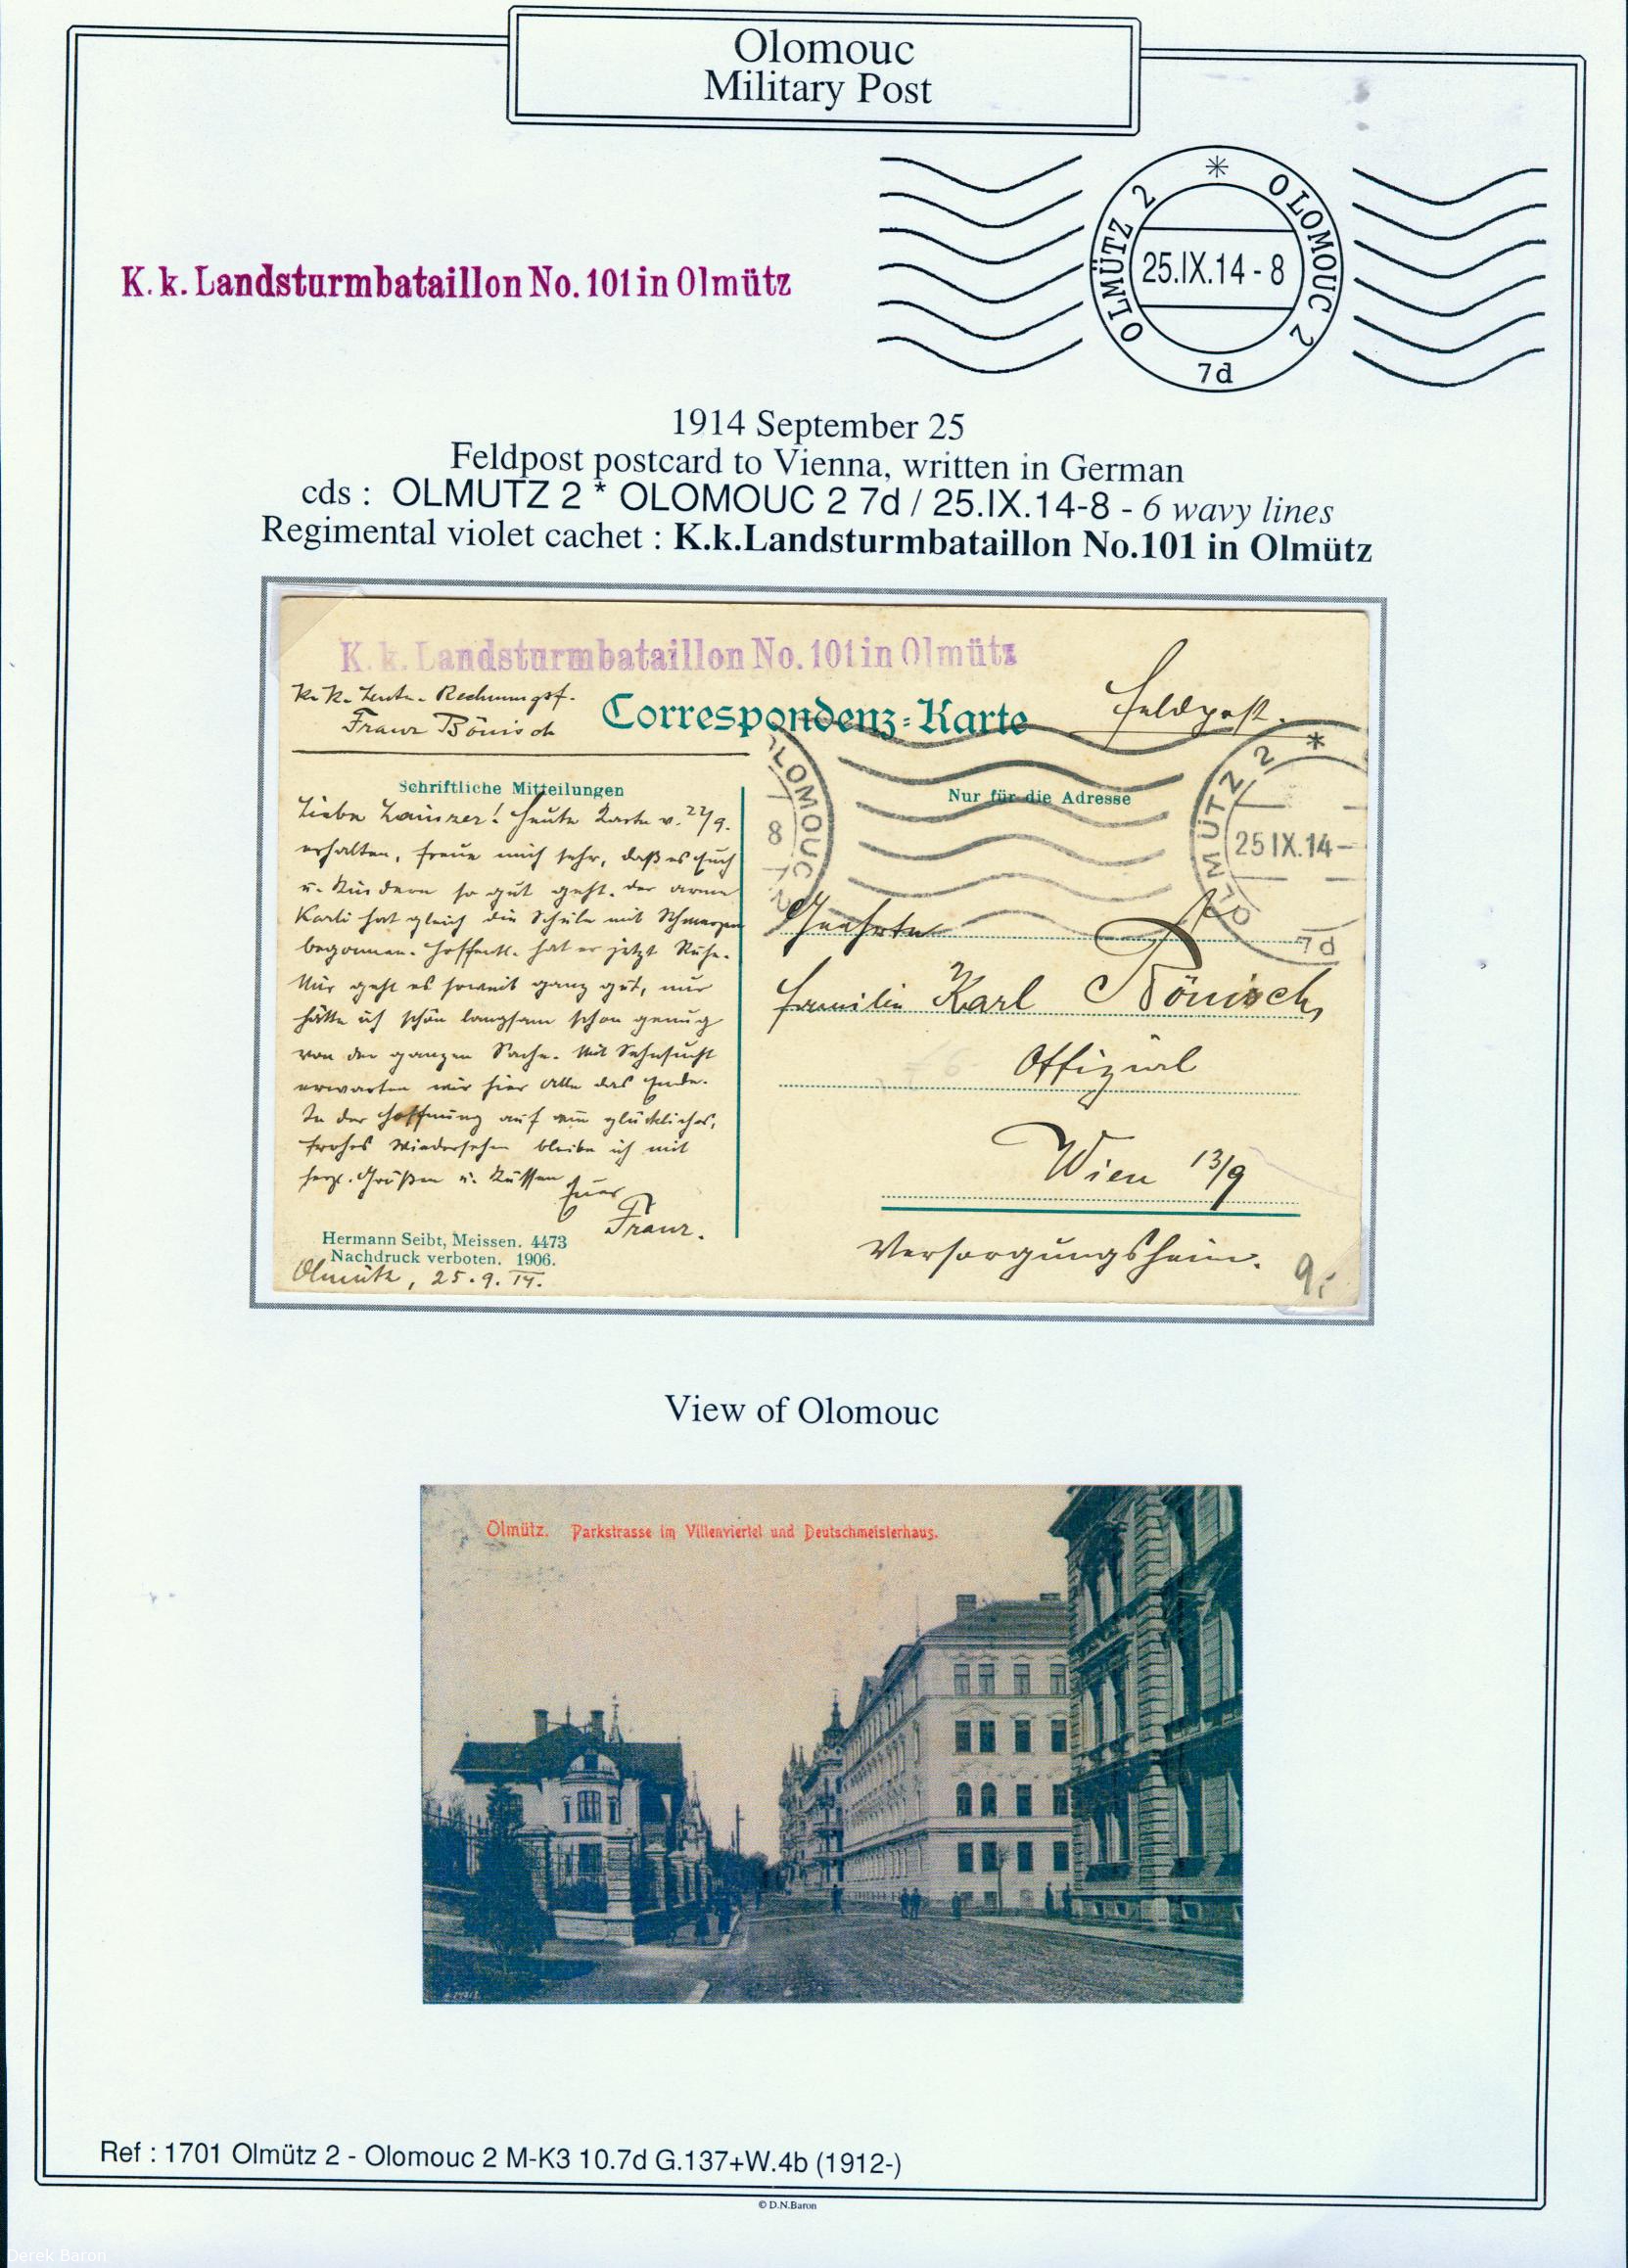 Olomouc
Military Post
K. k. Landsturmbataillon No. 101 in Olmütz
OLMÜTZ 2 * OLOMOUC 2
25.IX.14 - 8
7d
1914 September 25
Feldpost postcard to Vienna, written in German
cds : OLMUTZ 2 * OLOMOUC 2 7d / 25.IX.14-8 - 6 wavy lines
Regimental violet cachet : K.k.Landsturmbataillon No.101 in Olmütz
K. k. Landsturmbataillon No. 101 in Olmütz
Franz Bönisch
Correspondenz-Karte
Feldpost.
OLOMOUC 2
8
OLMÜTZ 2 *
25 IX.14-
7d
Schriftliche Mitteilungen
Nur für die Adresse
Heute Karte v. 22/9.
erhalten, freue mich sehr, daß es Euch
u. Kindern so gut geht. Der arme
Karli hat gleich die Schule mit Schmerzen
begonnen. Hoffentl. hat er jetzt Ruhe.
Mir geht es soweit ganz gut, nur
hätte ich schon langsam schon genug
von der ganzen Sache. Mit Sehnsucht
erwarten wir hier alle das Ende.
In der Hoffnung auf ein glückliches,
frohes Wiedersehen bleibe ich mit
herz. Grüßen u. Küssen
Euer
Franz.
Hermann Seibt, Meissen. 4473
Nachdruck verboten. 1906.
Olmütz, 25.9.14.
Geehrte
Familie Karl Bönisch,
Offizial
Wien 13/9
Versorgungsheim.
9,-
View of Olomouc
Olmütz. Parkstrasse im Villenviertel und Deutschmeisterhaus.
Ref : 1701 Olmütz 2 - Olomouc 2 M-K3 10.7d G.137+W.4b (1912-)
© D.N.Baron
Derek Baron